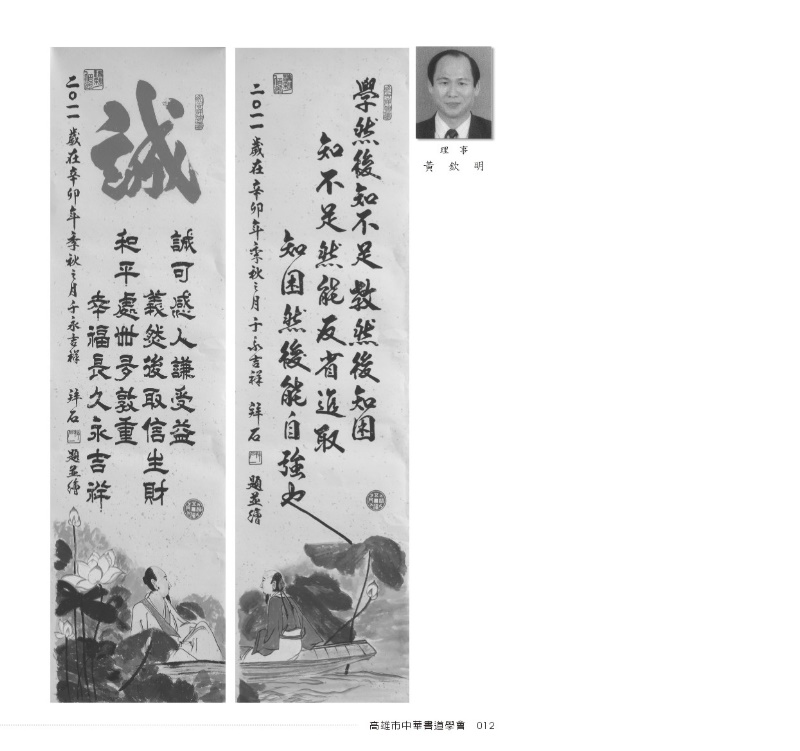 理事
黃欽明
學然後知不足教然後知困
知不足然能反省進取
知困然後能自強也
二〇一一歲在辛卯年季秋之月于永吉祥 石 題並繪
誠
誠可感人謙受益
義然後取信生財
和平處世敦重
幸福長久永吉祥
二〇一一歲在辛卯年季秋之月于永吉祥 石 題並繪
高雄市中華書道學會 012